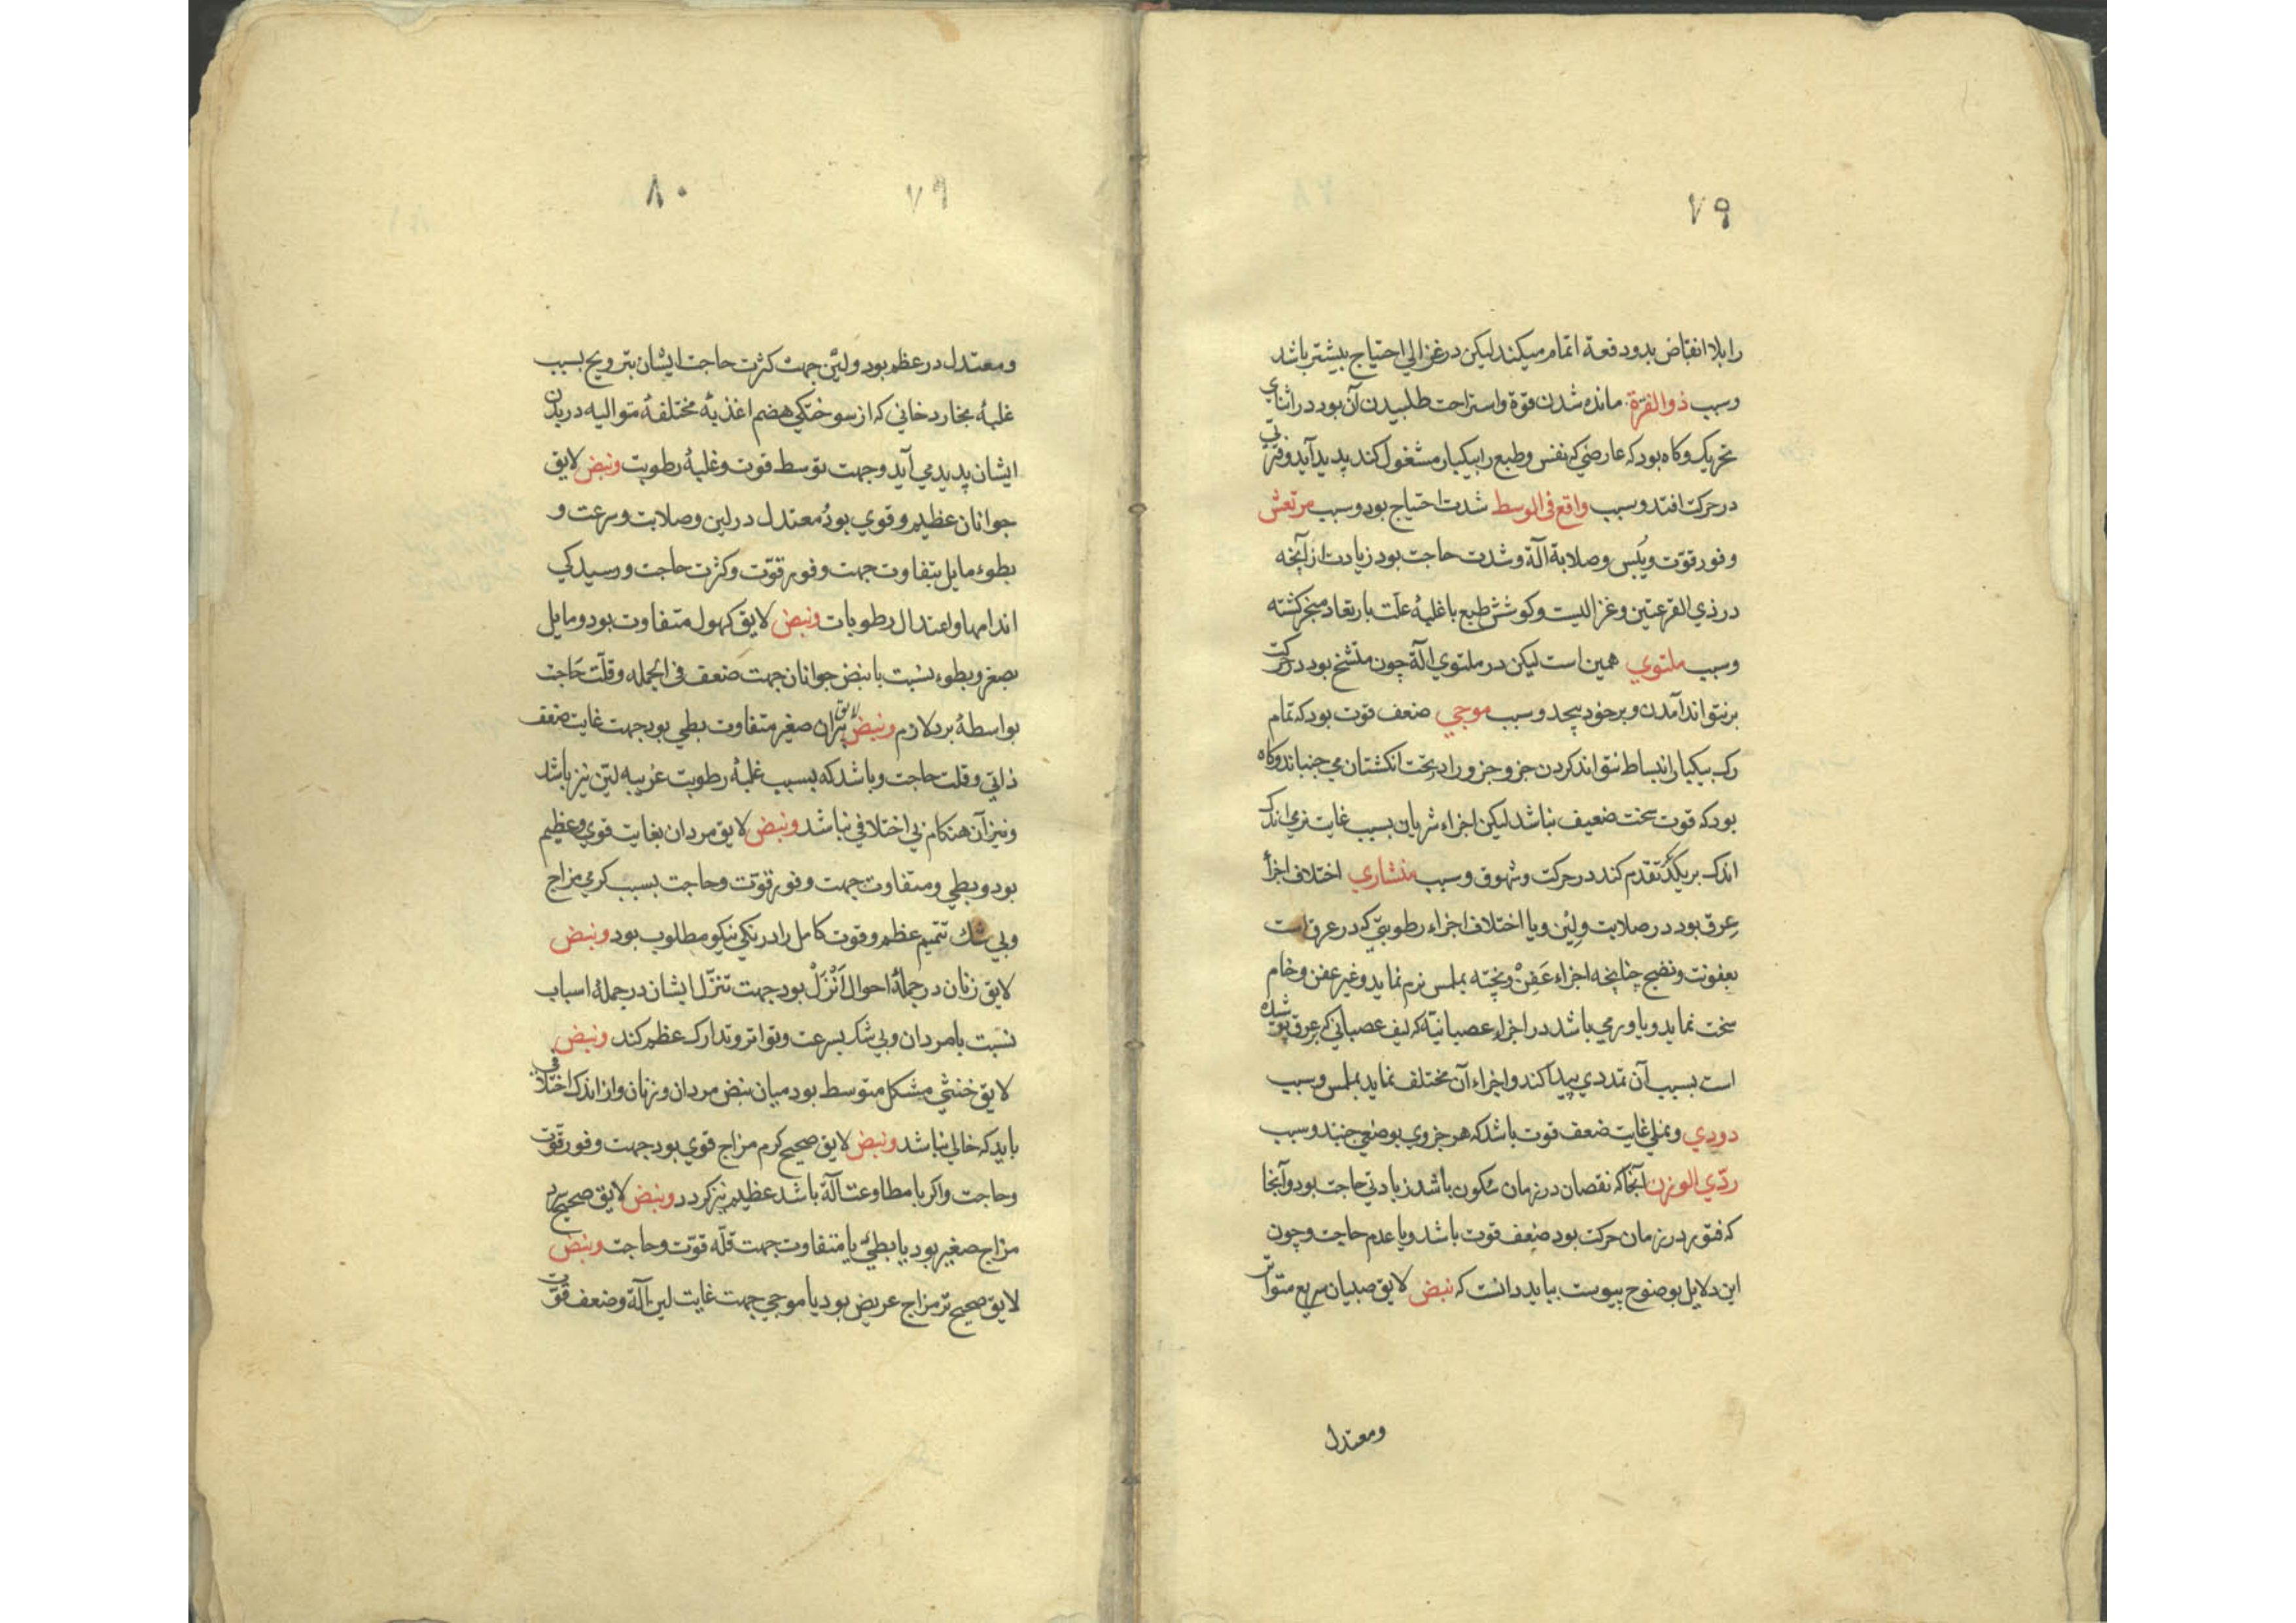 ۷۹
را بلا انقباض بدو دفعة اتمام میکند لیکن در غزالی احتیاج بیشتر باشد
وسبب ذو الفترة مانده شدن قوة واستراحت طلبیدن آن بود در اثنای
تحریک وکاه بود که عارضی که نفس وطبع را بیکبار مشغول کند پدید آید وفترتی
در حرکت افتد وسبب واقع فی الوسط شدت احتیاج بود وسبب مرتعش
وفور قوّت ویُبس وصلابة آلة وشدت حاجت بود زیادت از آنچه
در ذی القرعتین وغزالیست وکوشش طبع با غلبهٔ علّت بارتعاد منجر کشته
وسبب ملتوی همین است لیکن در ملتوی الة چون متشنج بود در حرکت
بر نتواند آمدن وبر خود پیچد وسبب موجی ضعف قوت بود که تمام
رک بیکبار انبساط نتواند کردن جزو جزو را در تحت انکشتان می جنباند وکاه
بود که قوت سخت ضعیف نباشد لیکن اجزاء شریان بسبب غایت نرمی اندک
اندک بر یکدیکر تقدم کند در حرکت وشهوق وسبب منشاری اختلاف اجزأ
عِرق بود در صلابت ولِیْن ویا اختلاف اجزاء رطوبتی که در عرق است
بعفونت ونضج چنانچه اجزاء عَفِنْ وپخته بملمس نرم نماید وغیر عفن وخام
سخت نماید ویا ورمی باشد در اجزاء عصبانیّة که لیف عصبانی که بعرق پیوسته شده
است بسبب آن تمددی پیدا کند واجزاء آن مختلف نماید بملمس وسبب
دودی ونملی غایت ضعف قوت باشد که هر جزوی بوضعی جنبد وسبب
ردّی الوزن آنجا که نقصان در زمان سُکون باشد زیادتی حاجت بود وآنجا
که فتور در زمان حرکت بود ضعف قوت باشد ویا عدم حاجت وچون
این دلایل بوضوح پیوست بباید دانست که نبض لایق صبیان سریع متواتر
ومعتدل
۸۰
۷۹
ومعتدل در عظم بود ولیّن جهت کثرت حاجت ایشان بترویح بسبب
غلبهٔ بخار دخانی که از سوختکی هضم اغذیهٔ مختلفهٔ متوالیه در بدن
ایشان پدید می آید وجهت توسط قوت وغلبهٔ رطوبت ونبض لایق
جوانان عظیم وقوی بود معتدل در لین وصلابت وسرعت و
بطوء مایل بتفاوت جهت وفور قوّت وکثرت حاجت ورسیدکی
اندامها واعتدال رطوبات ونبض لایق کهول متفاوت بود ومایل
بصغر وبطوء نسبت با نبض جوانان جهت ضعف فی الجمله وقلّت حَاجت
بواسطهٔ برد لازم ونبض لایق پیران صغیر متفاوت بطی بود جهت غایت ضعف
ذاتی وقلت حاجت وباشد که بسبب غلبهٔ رطوبت غریبه لیّن نیز باشد
ونیز آن هنکام بی اختلافی نباشد ونبض لایق مردان بغایت قوی وعظیم
بود وبطی ومتفاوت جهت وفور قوّت وحاجت بسبب کرمی مزاج
وبی شک تتمیم عظم وقوت کامل را درنکی نیکو مطلوب بود ونبض
لایق زنان در جملهٔ احوال اَنْزَلْ بود جهت تنزّل ایشان در جملهٔ اسباب
نسبت با مردان وبی شک بسرعت وتواتر وتدارک عظم کند ونبض
لایق خنثی مشکل متوسط بود میان نبض مردان وزنان واز اندک اختلافی
باید که خالی نباشد ونبض لایق صحیح کرم مزاج قوی بود جهت وفور قوّت
وحاجت واکر با مطاوعت آلة باشد عظیم نیز کردد ونبض لایق صحیح سرد
مزاج صغیر بود یا بطئ یا متفاوت جهت قلّه قوّت وحاجت ونبض
لایق صحیح تر مزاج عریض بود یا موجی جهت غایت لین آلة وضعف قوّت